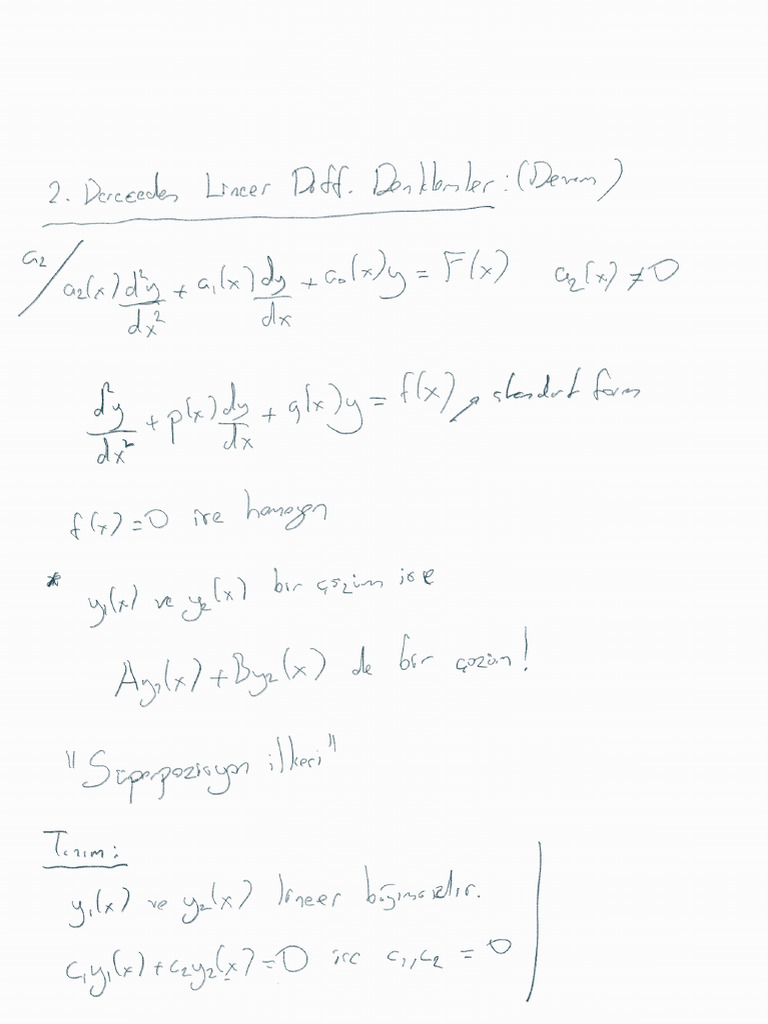 2. Dereceden Lineer Diff. Denklemler: (Devam)
a₂ / a₂(x) d²y/dx² + a₁(x) dy/dx + a₀(x)y = F(x) a₂(x) ≠ 0
d²y/dx² + p(x) dy/dx + q(x)y = f(x) → standart form
f(x) = 0 ise homojen
* y₁(x) ve y₂(x) bir çözüm ise
Ay₁(x) + By₂(x) de bir çözüm!
"Süperpozisyon ilkesi"
Tanım:
y₁(x) ve y₂(x) lineer bağımsızdır.
c₁y₁(x) + c₂y₂(x) = 0 ise c₁, c₂ = 0